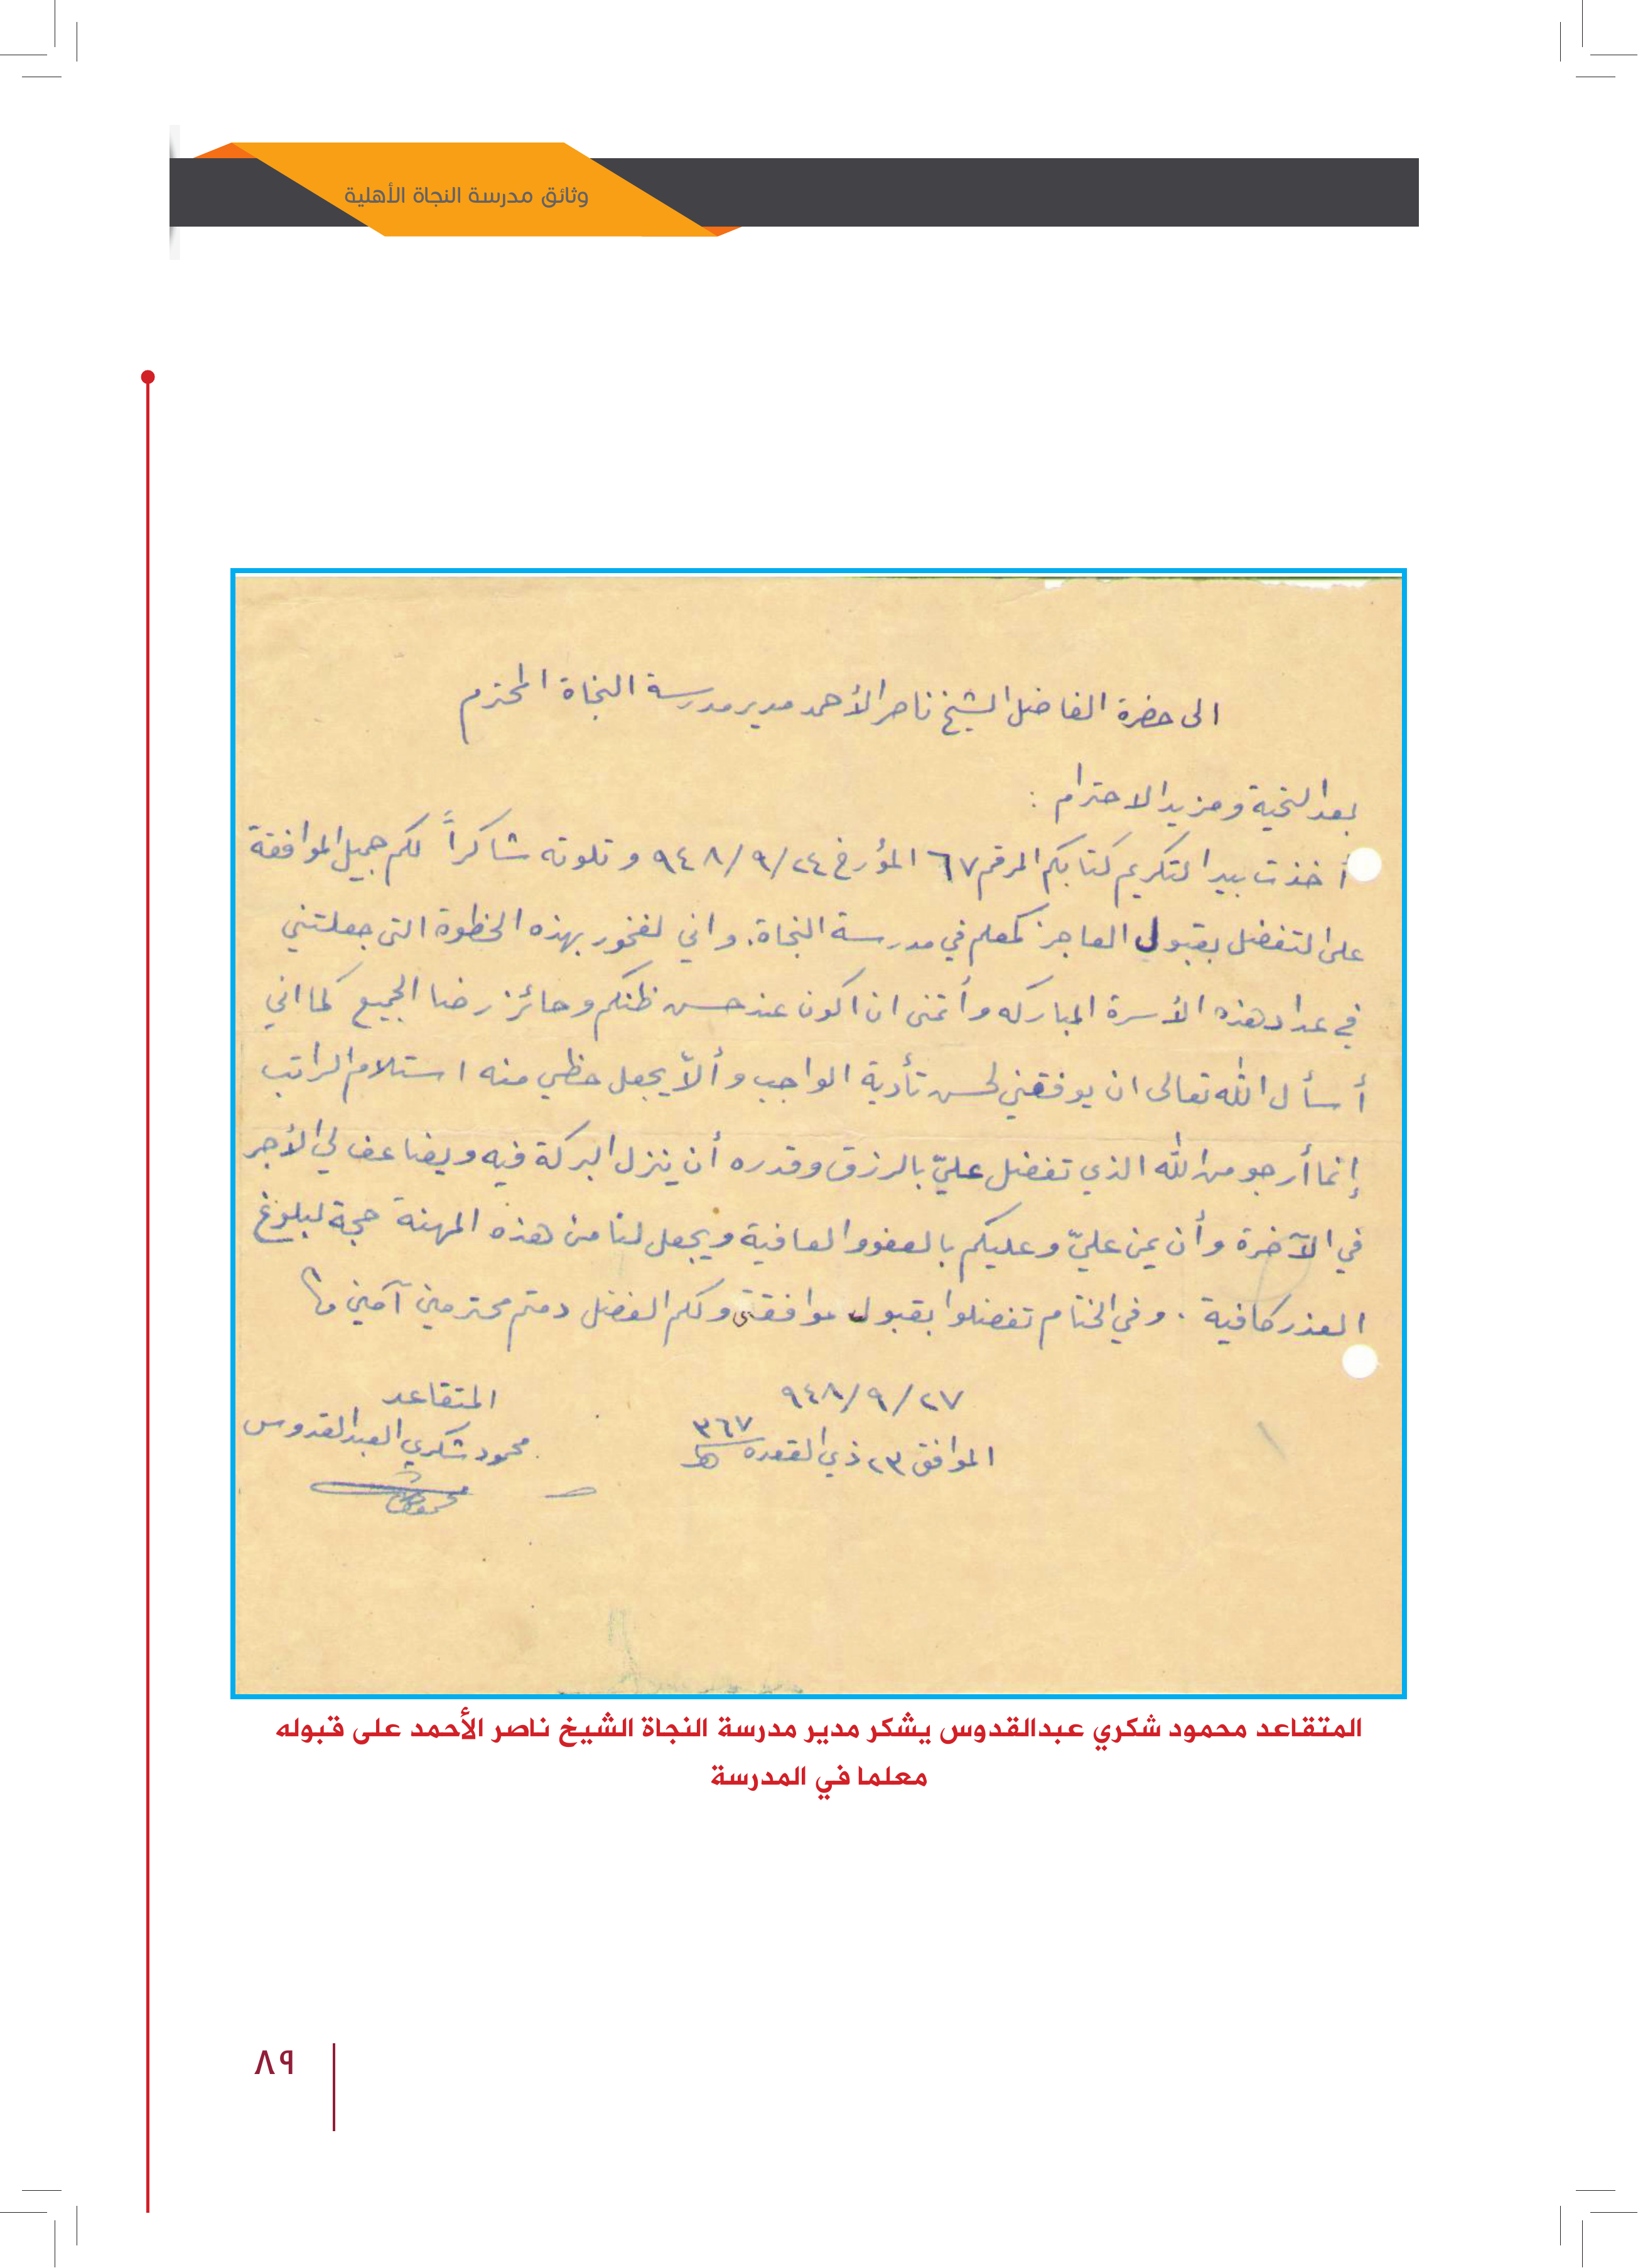 وثائق مدرسة النجاة الأهلية
الى حضرة الفاضل الشيخ ناصر الأحمد مدير مدرسة النجاة المحترم
بعد التحية ومزيد الاحترام :
أخذت بيد التكريم كتابكم المرقم ٦٧ المؤرخ ٩٤٨/٩/٢٤ وتلوته شاكراً لكم جميل الموافقة
على التفضل بقبول العاجز كمعلم في مدرسة النجاة. واني لفخور بهذه الحظوة التي جعلتني
في عداد هذه الأسرة المباركه وأتمنى ان اكون عند حسن ظنكم وحائز رضا الجميع كما اني
أسأل الله تعالى ان يوفقني لحسن تأدية الواجب وألاّ يجعل حظي منه استلام الراتب
إنما أرجو من الله الذي تفضل عليّ بالرزق وقدره أن ينزل البركة فيه ويضاعف لي الأجر
في الآخرة وأن يمن عليّ وعليكم بالعفو والعافية ويجعل لنا من هذه المهنة حجة لبلوغ
العذر كافية . وفي الختام تفضلوا بقبول موافقتي ولكم الفضل دمتم محترمين آمين
٩٤٨/٩/٢٧
الموافق ٢٣ ذي القعده ٣٦٧ هـ
المتقاعد
محمود شكري العبدالقدوس
المتقاعد محمود شكري عبدالقدوس يشكر مدير مدرسة النجاة الشيخ ناصر الأحمد على قبوله
معلما في المدرسة
٨٩